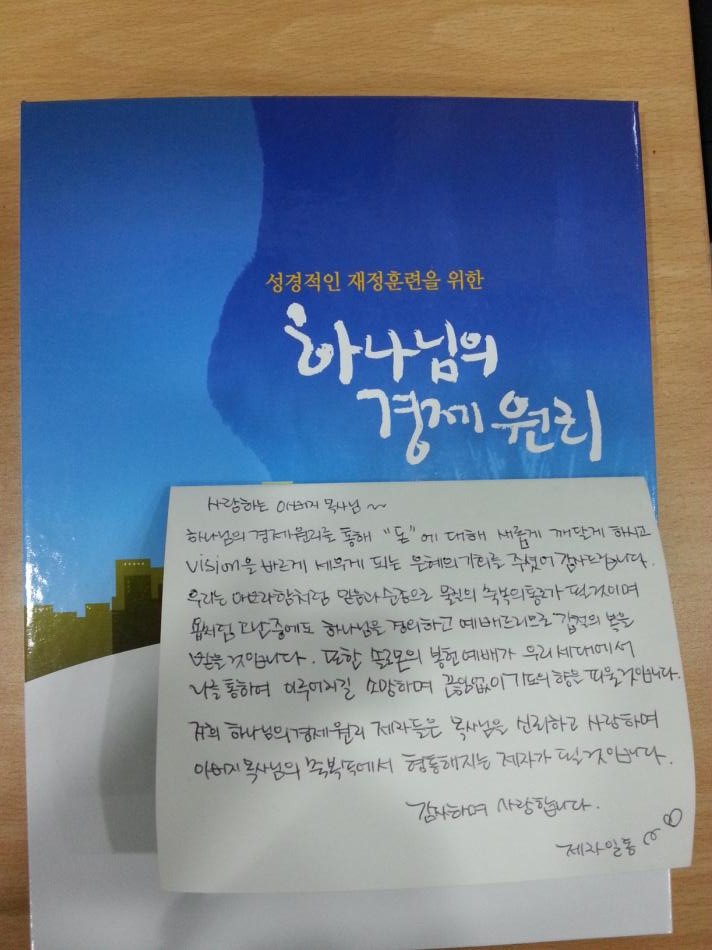 성경적인 재정훈련을 위한
하나님의
경제 원리
사랑하는 아버지 목사님~
하나님의 경제원리를 통해 "돈"에 대해 새롭게 깨닫게 하시고
vision을 바르게 세우게 되는 은혜의 기회를 주셨어 감사드립니다.
우리는 아브라함처럼 믿음과 순종으로 물질의 축복의 통로가 될것이며
욥처럼 고난중에도 하나님을 경외하고 예배드리므로 갑절의 복을
받을것입니다. 또한 솔로몬의 봉헌예배가 우리세대에서
나를 통하여 이루어지길 소망하며 끊임없이 기도의 향을 피울것입니다.
저희 하나님의경제원리 제자들은 목사님을 신뢰하고 사랑하며
아버지 목사님의 축복속에서 형통해지는 제자가 될것입니다.
감사하며 사랑합니다.
제자일동